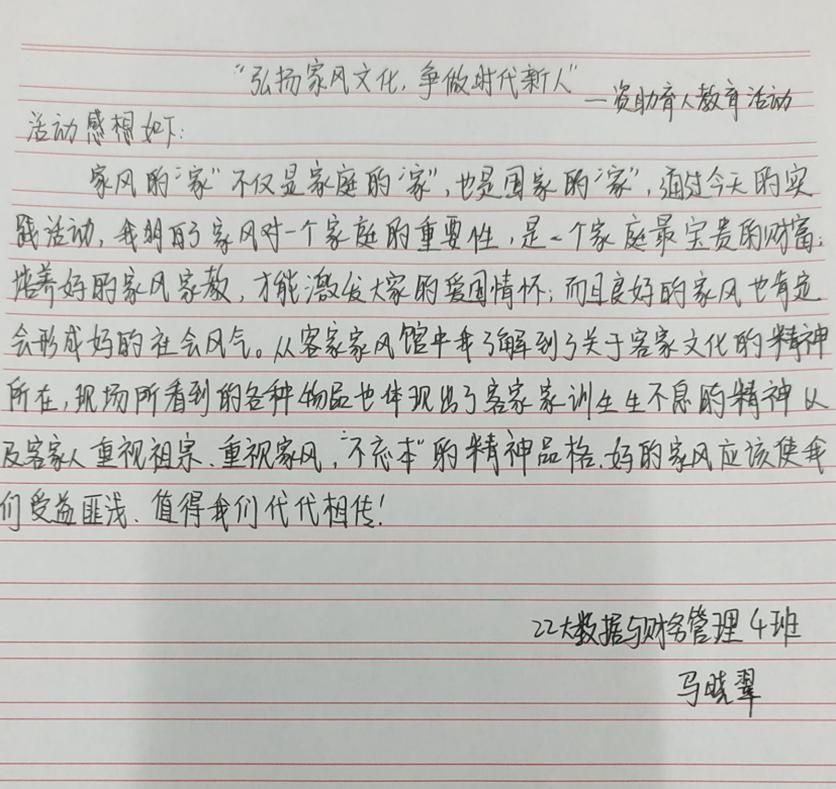 “弘扬家风文化，争做时代新人”
—资助育人教育活动
活动感想如下：
家风的“家”不仅是家庭的“家”，也是国家的“家”，通过今天的实
践活动，我明白了家风对一个家庭的重要性，是一个家庭最宝贵的财富；
培养好的家风家教，才能激发大家的爱国情怀；而且良好的家风也肯定
会形成好的社会风气。从客家家风馆中我了解到了关于客家文化的精神
所在，现场所看到的各种物品也体现出了客家家训生生不息的精神以
及客家人重视祖宗、重视家风，“不忘本”的精神品格、好的家风应该使我
们受益匪浅、值得我们代代相传！
22大数据与财务管理4班
马晓翠